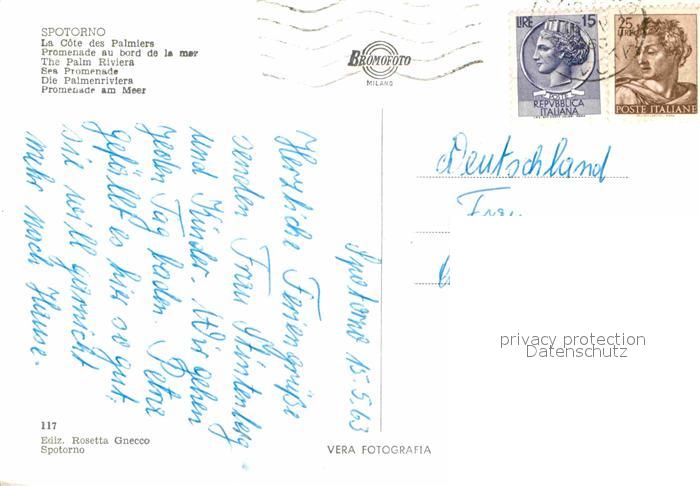 SPOTORNO
La Côte des Palmiers
Promenade au bord de la mer
The Palm Riviera
Sea Promenade
Die Palmenriviera
Promenade am Meer
BROMOFOTO
MILANO
LIRE 15
POSTE
REPVBBLICA
ITALIANA
25
LIRE
POSTE ITALIANE
Deutschland
Frau
privacy protection
Datenschutz
Spotorno 15.5.63
Herzliche Feriengrüße
senden Frau
und Kinder. Wir gehen
jeden Tag baden. Petra
gefällt es hier so gut,
sie will garnicht
mehr nach Hause.
117
Ediz. Rosetta Gnecco
Spotorno
VERA FOTOGRAFIA